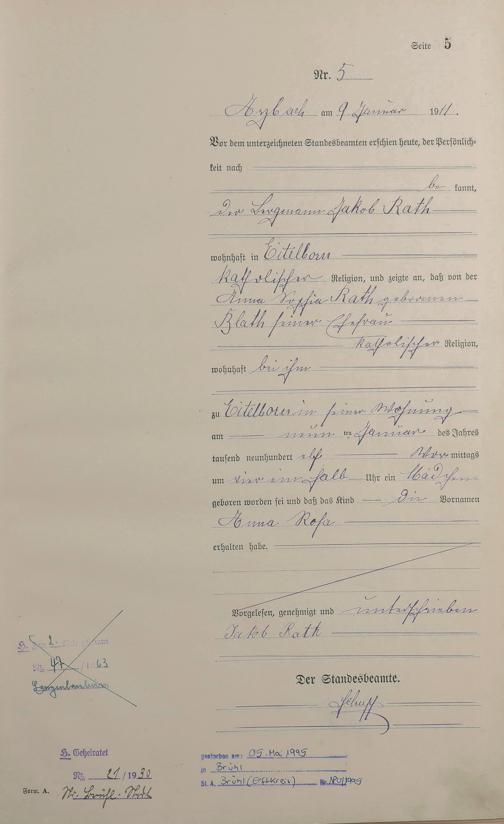 Seite 5
Nr. 5
Arzbach am 9 Januar 1911.
Vor dem unterzeichneten Standesbeamten erschien heute, der Persönlich-
keit nach
be kannt,
der Bergmann Jakob Rath
wohnhaft in Eitelborn
katholischer Religion, und zeigte an, daß von der
Anna Sophia Rath geborenen
Blath seiner Ehefrau
katholischer Religion,
wohnhaft bei ihm
zu Eitelborn in seiner Wohnung
am neun ten Januar des Jahres
tausend neunhundert elf Vor mittags
um vier ein halb Uhr ein Mädchen
geboren worden sei und daß das Kind die Vornamen
Anna Rosa
erhalten habe.
Vorgelesen, genehmigt und unterschrieben
Jakob Rath
Der Standesbeamte.
H. 2.
Nr. 47 /1963
H. Geheiratet
Nr. 21/1930
Form. A. St.
gestorben am: 05. Mai 1995
in Brühl
St. A. Brühl (Erftkreis) Nr.